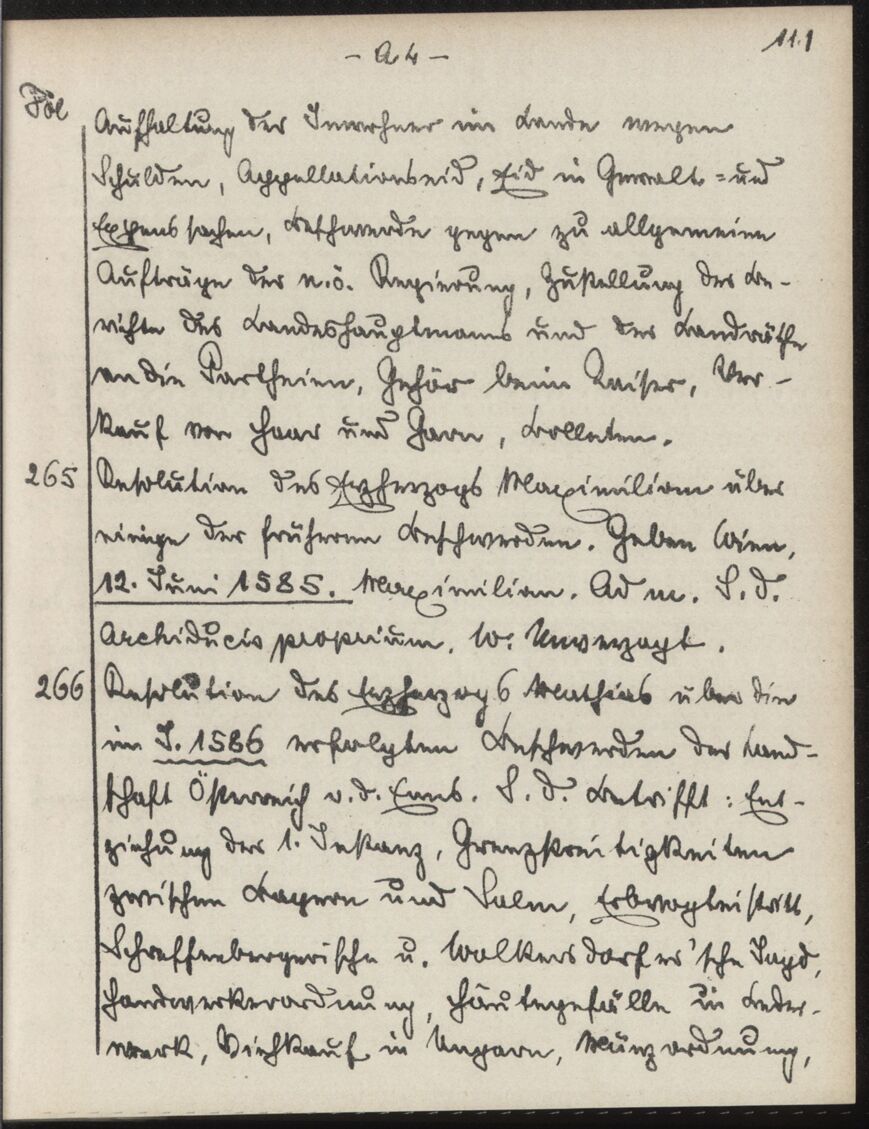 - A 4 -
111
Fol
Aufhaltung der Inwohner im Lande wegen
Schulden, Appellationseid, Eid in Gewalt- und
Expenssachen, Beschwerde gegen zu allgemeine
Aufträge der n.ö. Regierung, Zustellung der Be-
richte des Landeshauptmanns und der Landräthe
an die Partheien, Gehör beim Kaiser, Ver-
kauf von Haar und Garn, Bolleten.
265 Resolution des Erzherzogs Maximilian über
einige der früheren Beschwerden. Geben Wien,
12. Juni 1585. Maximilian. Ad m. S. d.
Archiducis proprium. W. Unverzagt.
266 Resolution des Erzherzogs Mathias über die
im J. 1586 erfolgten Beschwerden der Land-
schaft Österreich o. d. Enns. S. d. Betrifft: Ent-
ziehung der 1. Instanz, Grenzstreitigkeiten
zwischen Bayern und Salm, Erbvogteistritt,
Schreffenbergerische u. Wolkersdorfer'sche Jagd,
Handwerkerordnung, Häutegefälle in Leder-
werk, Viehkauf in Ungarn, Münzordnung,